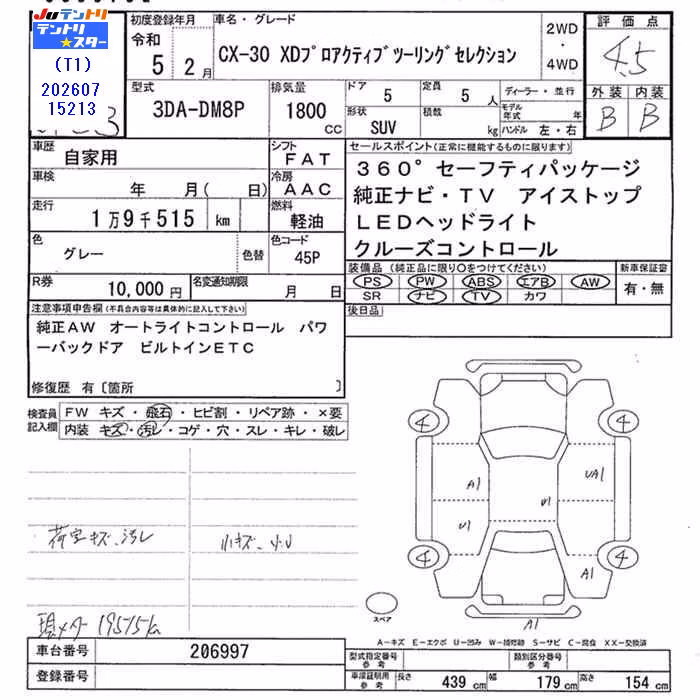 Juテントリ
テントリ
スター
(T1)
202607
15213
初度登録年月
令和
5 2月
車名・グレード
CX-30 XDプロアクティブツーリングセレクション
2WD
・
4WD
評価点
4.5
外装 内装
B B
型式
3DA-DM8P
排気量
1800
CC
ドア
5
定員
5 人
形状
SUV
積載
kg
ディーラー・並行
モデル年式 年
ハンドル 左・右
車歴
自家用
シフト
FAT
車検
年 月( 日)
冷房
AAC
走行
1万9千515 km
燃料
軽油
色
グレー
色替
色コード
45P
R券
10,000円
名変通知期限
月 日
セールスポイント(正常に機能するものに限ります)
360°セーフティパッケージ
純正ナビ・TV アイストップ
LEDヘッドライト
クルーズコントロール
装備品(純正品に限り○をつけてください)
PS PW ABS エアB AW
SR ナビ TV カワ
新車保証書
有・無
後日品
注意事項申告欄(不具合内容等は具体的に記入して下さい)
純正AW オートライトコントロール パワ
ーバックドア ビルトインETC
修復歴 有〔箇所 〕
検査員
記入欄
FW キズ・飛石・ヒビ割・リペア跡・×要
内装 キズ・汚レ・コゲ・穴・スレ・キレ・破レ
荷室キズ、汚レ
小キズ、小U
現メーター 19515km
4
4
4
4
A1
U1
U1
UA1
A1
A1
スペア
A-キズ E-エクボ U-凹み W-補修跡 S-サビ C-腐食 XX-交換済
車台番号
206997
登録番号
型式指定番号
参考
類別区分番号
参考
車検証明用
参考
長さ 439 cm 幅 179 cm 高さ 154 cm